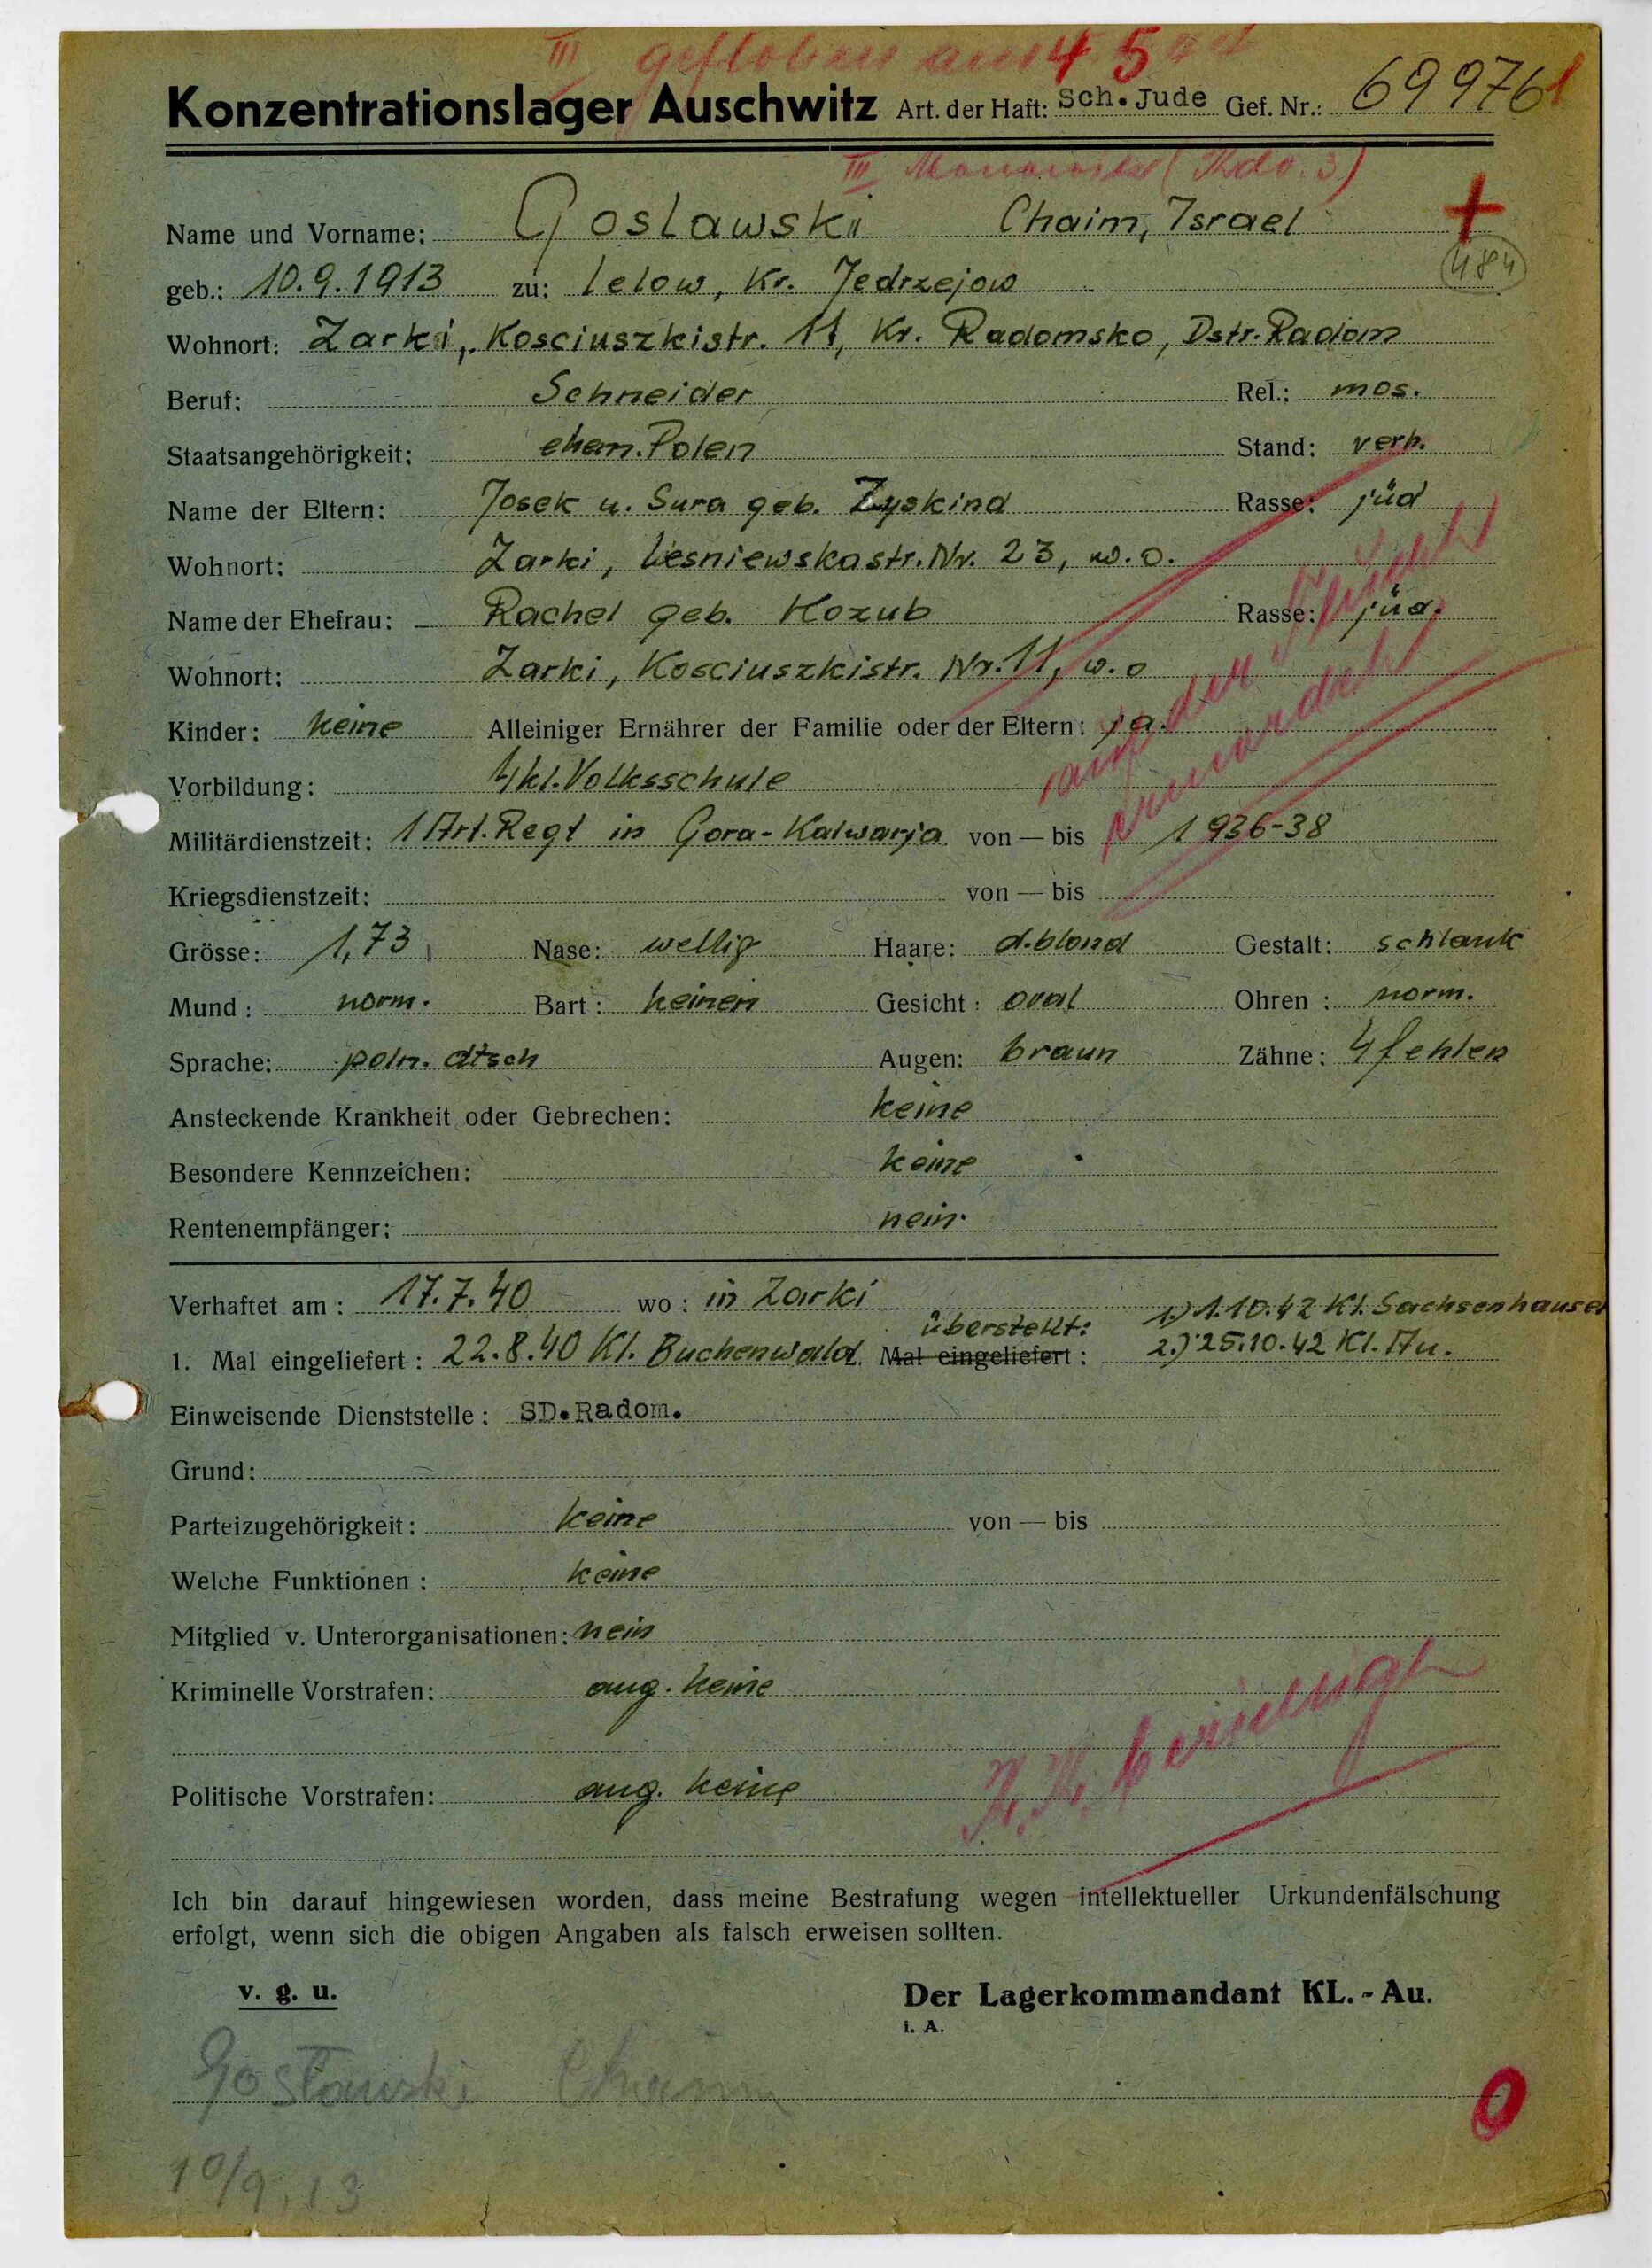 III geflohen am 4 5
Konzentrationslager Auschwitz Art. der Haft: Sch.Jude Gef. Nr.: 69976
III Monowitz (Kdo. 3)
Name und Vorname: Goslawski Chaim, Israel
484
geb.: 10.9.1913 zu: Lelow, Kr. Jedrzejow
Wohnort: Zarki, Kosciuszkistr. 11, Kr. Radomsko, Dstr. Radom
Beruf: Schneider Rel.: mos.
Staatsangehörigkeit: ehem. Polen Stand: verh.
Name der Eltern: Josek u. Sura geb. Zyskind Rasse: jüd
Wohnort: Zarki, Lesniewskastr. Nr. 23, w.o.
Name der Ehefrau: Rachel geb. Kozub Rasse: jüd.
Wohnort: Zarki, Kosciuszkistr. Nr. 11, w.o
Kinder: keine Alleiniger Ernährer der Familie oder der Eltern: ja.
auf der Flucht
Vorbildung: 4 kl. Volksschule
Militärdienstzeit: 1 Art. Regt in Gora-Kalwarja von — bis 1936-38
Kriegsdienstzeit: von — bis
Grösse: 1,73 Nase: wellig Haare: d.blond Gestalt: schlank
Mund: norm. Bart: keinen Gesicht: oval Ohren: norm.
Sprache: poln. dtsch Augen: braun Zähne: 4 fehlen
Ansteckende Krankheit oder Gebrechen: keine
Besondere Kennzeichen: keine
Rentenempfänger: nein.
Verhaftet am: 17.7.40 wo: in Zarki
überstellt: 1.) 1.10.42 Kl. Sachsenhausen
1. Mal eingeliefert: 22.8.40 Kl. Buchenwald. Mal eingeliefert: 2.) 25.10.42 Kl. Au.
Einweisende Dienststelle: SD.Radom.
Grund:
Parteizugehörigkeit: keine von — bis
Welche Funktionen: keine
Mitglied v. Unterorganisationen: nein
Kriminelle Vorstrafen: ang. keine
Politische Vorstrafen: ang. keine
Ich bin darauf hingewiesen worden, dass meine Bestrafung wegen intellektueller Urkundenfälschung
erfolgt, wenn sich die obigen Angaben als falsch erweisen sollten.
v. g. u. Der Lagerkommandant KL.-Au.
i. A.
Gosławski Chaim
10/9.13